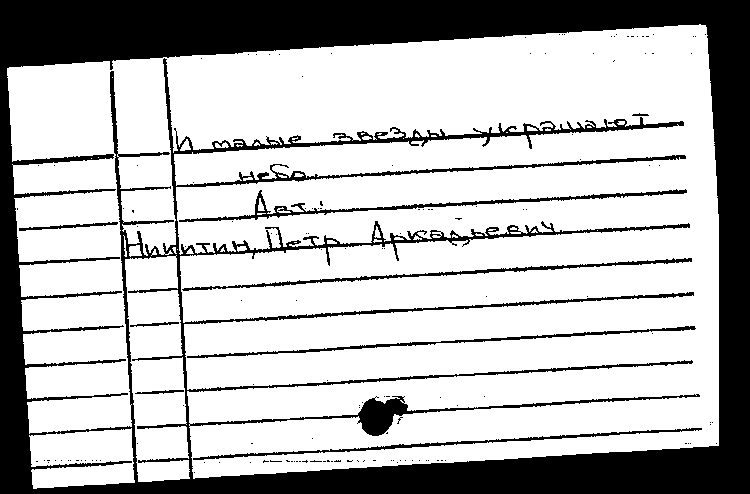 И малые звезды украшают
небо.
Авт.:
Никитин, Петр Аркадьевич.